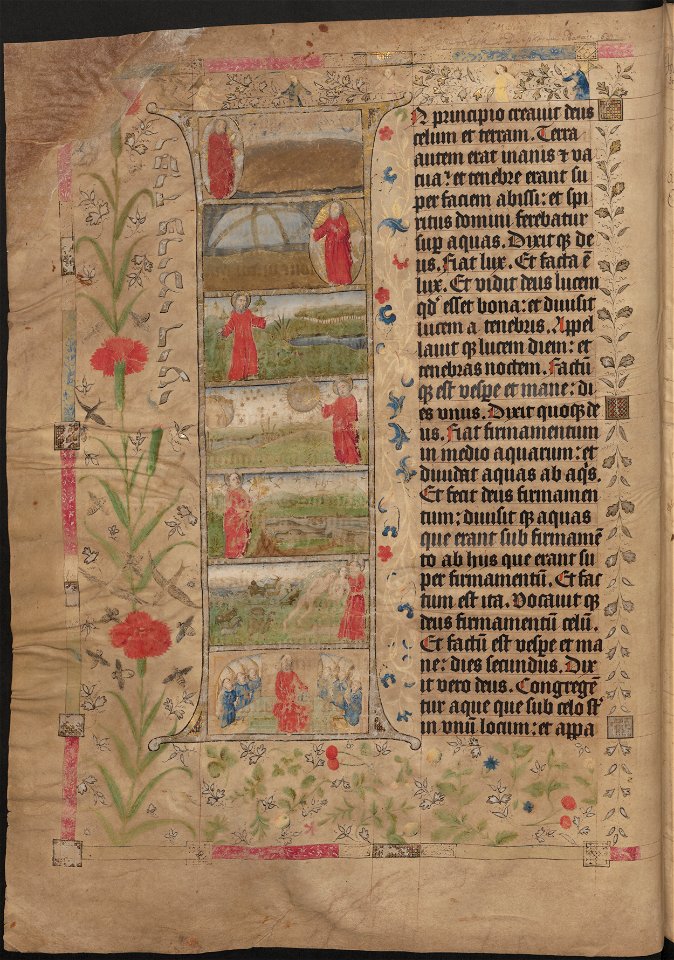 N principio creauit deus
celum et terram. Terra
autem erat inanis ⁊ va
cua: et tenebre erant su
per faciem abissi: et spi
ritus domini ferebatur
sup aquas. Dixit qꝫ de
us. Fiat lux. Et facta ē
lux. Et vidit deus lucem
qd' esset bona: et diuisit
lucem a tenebris. Appel
lauit qꝫ lucem diem: et
tenebras noctem. Factū
qꝫ est vespe et mane: di
es vnus. Dixit quoqꝫ de
us. Fiat firmamentum
in medio aquarum: et
diuidat aquas ab aq̄s.
Et fecit deus firmamen
tum: diuisit qꝫ aquas
que erant sub firmamē
to ab hijs que erant su
per firmamentū. Et fac
tum est ita. Vocauit qꝫ
deus firmamentū celū.
Et factū est vespe et ma
ne: dies secundus. Dix
it vero deus. Congregē
tur aque que sub celo st̄
in vnū locum: et appa